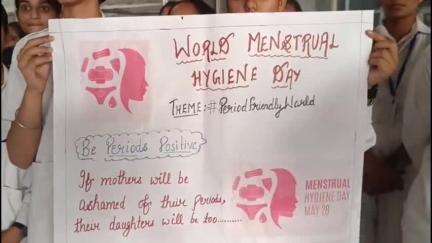 WORLD MENSTRUAL
HYGIENE DAY
THEME:-#PeriodFriendlyWorld
Be Periods Positive
If mothers will be
ashamed of their periods,
their daughters will be too..........
MENSTRUAL
HYGIENE DAY
MAY 28